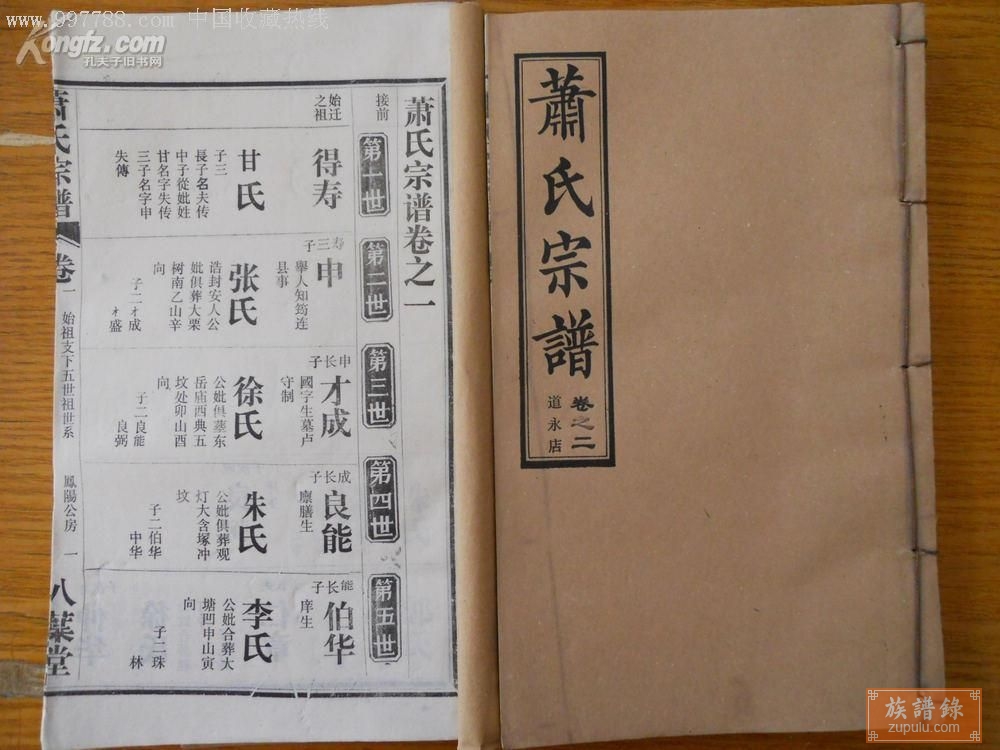 www.997788.com 中国收藏热线
Kongfz.com
孔夫子旧书网
萧氏宗谱卷之一
接前
第一世
第二世
第三世
第四世
第五世
始迁
之祖
得寿
甘氏
子三
長子名夫传
中子從妣姓
甘名字失传
三子名字申
失傳
寿三子
申
舉人知筠连
县事
张氏
诰封安人公
妣俱葬大栗
树南乙山辛
向
子二才成
才盛
申长子
才成
國字生墓卢
守制
徐氏
公妣俱墓东
岳庙西典五
坟处卯山酉
向
子二良能
良弼
成长子
良能
廪膳生
朱氏
公妣俱葬观
灯大含塚冲
坟
子二伯华
中华
能长子
伯华
庠生
李氏
公妣合葬大
塘凹申山寅
向
子二珠
林
萧氏宗譜
卷一
始祖支下五世祖世系
鳳陽公房
一
八葉堂
蕭氏宗譜
卷之二
道永店
族譜錄
zupulu.com